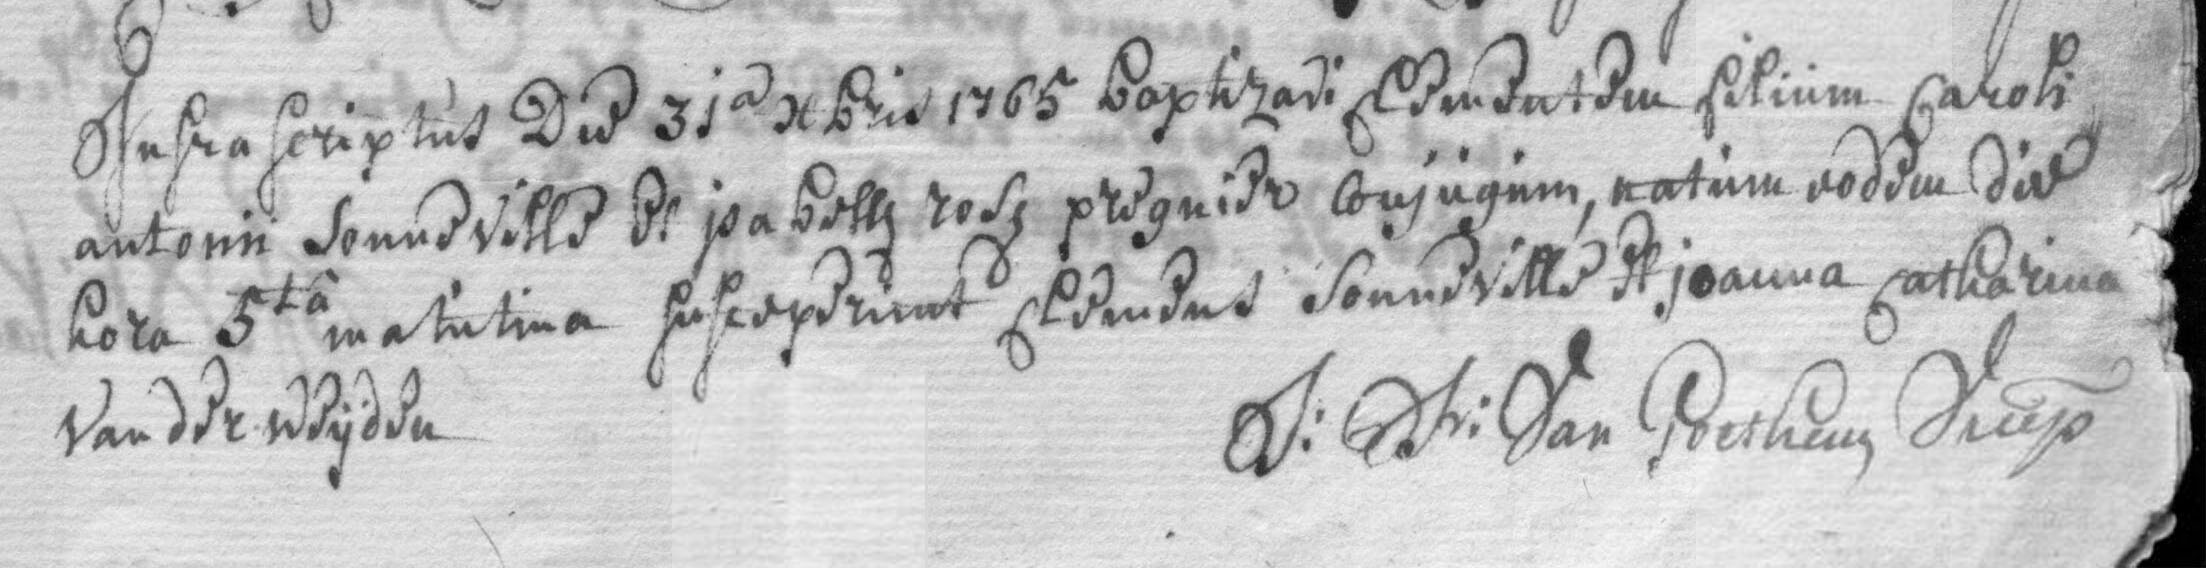 Infra scriptus Die 31a Xbris 1765 baptizavi Clementem filium Caroli
antonii Sonneville et jsabellę rosę pregnier Conjugum, natum eodem die
hora 5ta matutina susceperunt Clemens Sonneville et joanna Catharina
Van der weÿden
Van